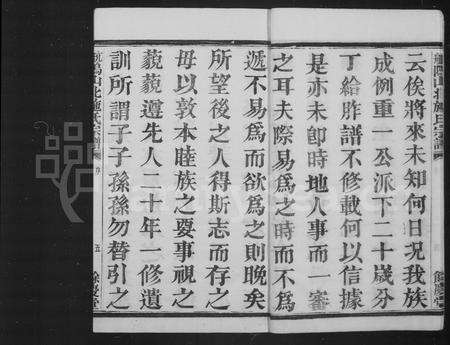 云俟將來未知何日況我族
成例重一公派下二十歲分
丁給胙譜不修載何以信據
是亦未卽時地人事而一審
之耳夫際易爲之時而不爲
遞不易爲而欲爲之則晚矣
所望後之人得斯志而存之
毋以敦本睦族之要事視之
藐藐遵先人二十年一修遺
訓所謂子子孫孫勿替引之
五